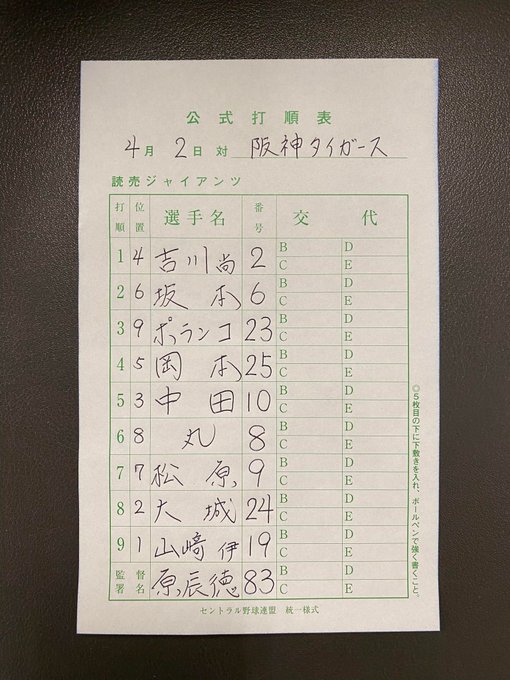 公式打順表
4月 2日 対 阪神タイガース
読売ジャイアンツ
打順 位置 選手名 番号 交代
1 4 吉川尚 2 B D C E
2 6 坂本 6 B D C E
3 9 ポランコ 23 B D C E
4 5 岡本 25 B D C E
5 3 中田 10 B D C E
6 8 丸 8 B D C E
7 7 松原 9 B D C E
8 2 大城 24 B D C E
9 1 山﨑伊 19 B D C E
監督署名 原辰徳 83 B D C E
◎5枚目の下に下敷きを入れ、ボールペンで強く書くこと。
セントラル野球連盟 統一様式